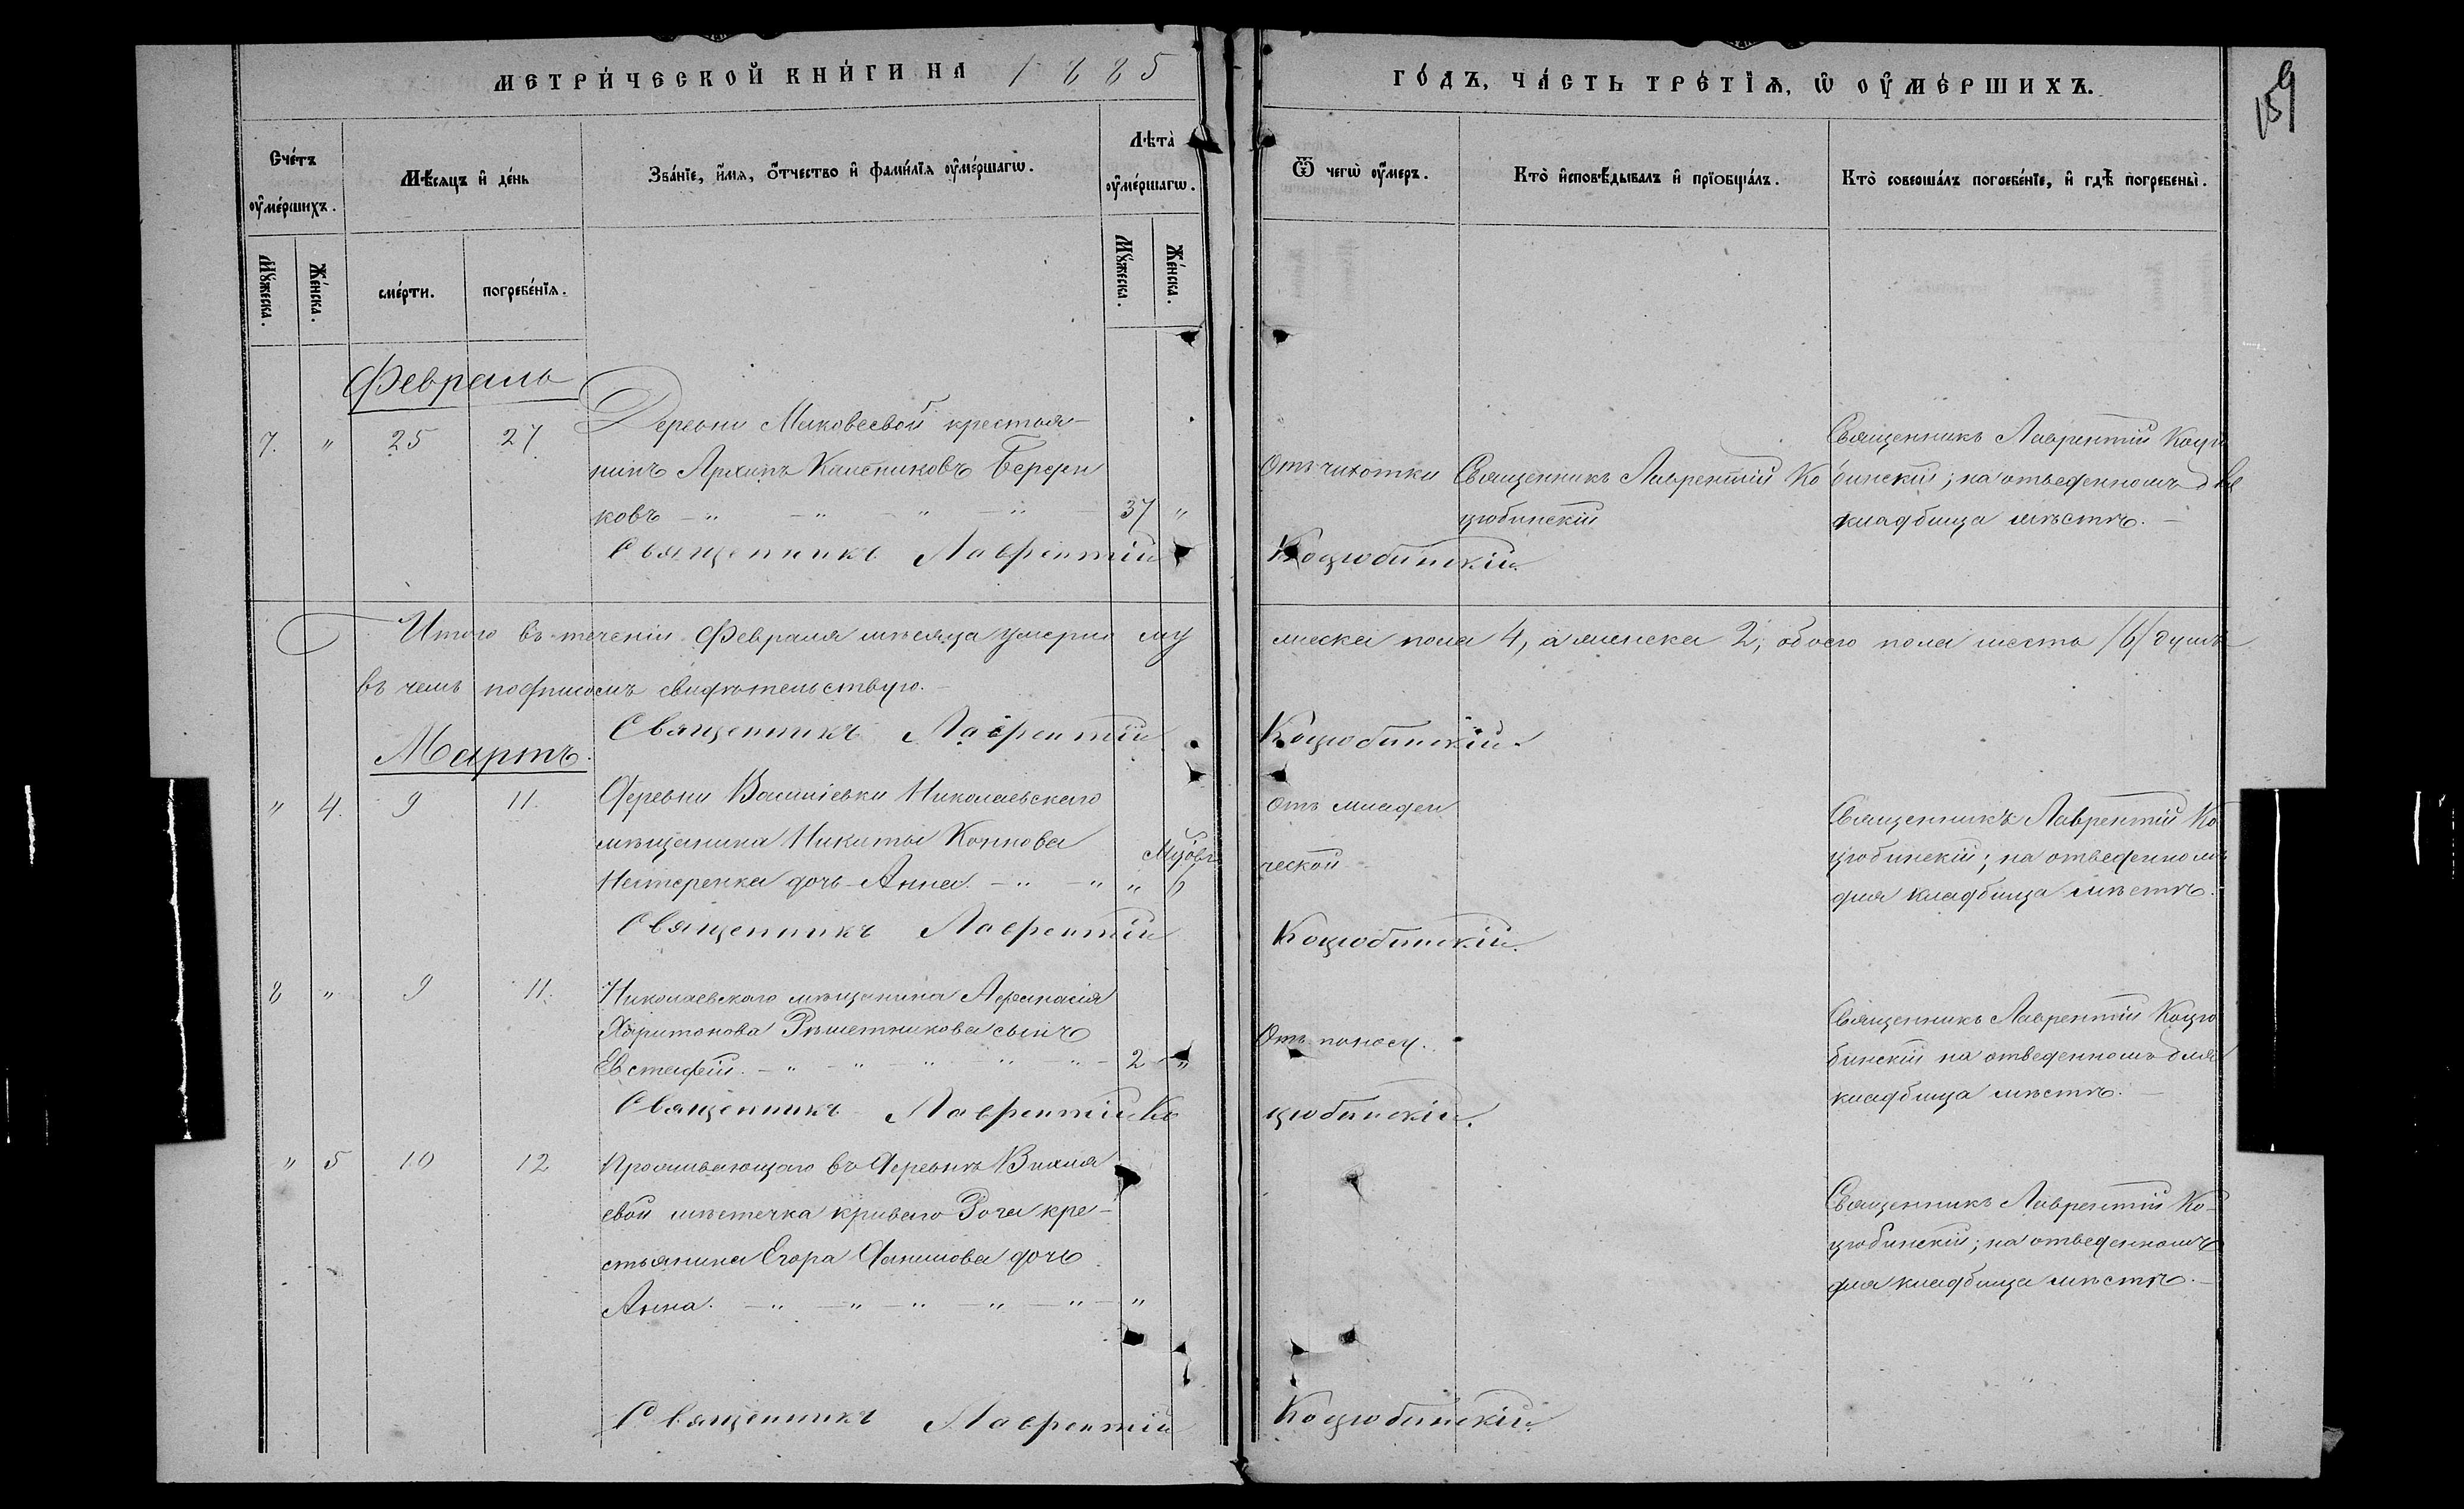 МЕТРИ́ЧЕСКОЙ КНИ́ГИ НА 1885
ГО́ДЪ, ЧА́СТЬ ТРЕ́ТІѦ, Ѡ ОУ҆МЕ́РШИХЪ.
159
Сче́тъ оу҆ме́ршихъ.
Мѣ́сяцъ и҆ де́нь
Зва́нїе, и҆́мѧ, ѻ҆́тчество и҆ фами́лїѧ оу҆ме́ршагѡ.
Лѣ́та оу҆ме́ршагѡ.
Ѿ чегѡ̀ оу҆́меръ.
Кто̀ и҆сповѣ́дывалъ и҆ прїобща́лъ.
Кто̀ соверша́лъ погребе́нїе, и҆ гдѣ̀ погребены̀.
Мꙋ́жеска.
Же́нска.
сме́рти.
погребе́нїѧ.
Мꙋ́жеска.
Же́нска.
Февраль
7. " 25 27
Деревни Маковеевой крестья-
нинъ Архипъ
ковъ - " - " - " - " 37 "
Отъ чихотки
Священникъ Лаврентій Ко
цюбинскій
Священникъ Лаврентій Коцю
бинскій; на отведенномъ для
кладбища мѣстѣ. -
Священникъ Лаврентій Коцюбинскій.
Итого въ теченіи Февраля мѣсяца умерло му
жеска пола 4, а женска 2, обоего пола шесть /6/ душъ
въ чемъ подписомъ свидѣтельствую. -
Священникъ Лаврентій Коцюбинскій.
Мартъ.
" 4. 9 11.
Деревни Василіевки Николаевскаго
мѣщанина Никиты
Нестеренка дочь Анна. - " - " " 6
Отъ младен
ческой
Священникъ Лаврентій Ко
цюбинскій; на отведенномъ
для кладбища мѣстѣ.
Священникъ Лаврентій Коцюбинскій.
8 " 9 11.
Николаевскаго мѣщанина Афанасія
Харитонова Рѣшетникова сынъ
Евстафій. - " - " - " " " - 2 "
Отъ поносу.
Священникъ Лаврентій Коцю
бинскій на отведенномъ для
кладбища мѣстѣ. -
Священникъ Лаврентій Коцюбинскій.
" 5 10 12
Проживающаго въ Деревнѣ
евой мѣстечка криваго Рога кре-
стьянина Егора Данилова дочь
Анна. - " - " - " - " - " - "
Священникъ Лаврентій Ко-
цюбинскій; на отведенномъ
для кладбища мѣстѣ. -
Священникъ Лаврентій Коцюбинскій.